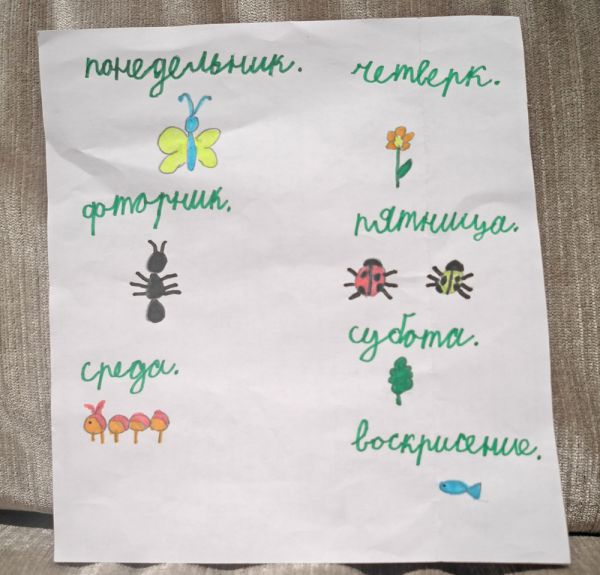 понедельник.
фторник.
среда.
четверк.
пятница.
субота.
воскрисение.